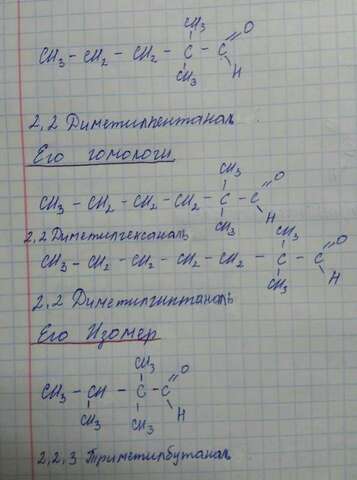 CH₃
CH₃ – CH₂ – CH₂ – C – C = O
CH₃ H
2,2 Диметилпентаналь
Его гомологи
CH₃
CH₃ – CH₂ – CH₂ – CH₂ – C – C = O
CH₃ H
2,2 Диметилгексаналь
CH₃
CH₃ – CH₂ – CH₂ – CH₂ – CH₂ – C – C = O
CH₃ H
2,2 Диметилгиптаналь
Его Изомер
CH₃
CH₃ – CH – C – C = O
CH₃ CH₃ H
2,2,3 Триметилбутаналь